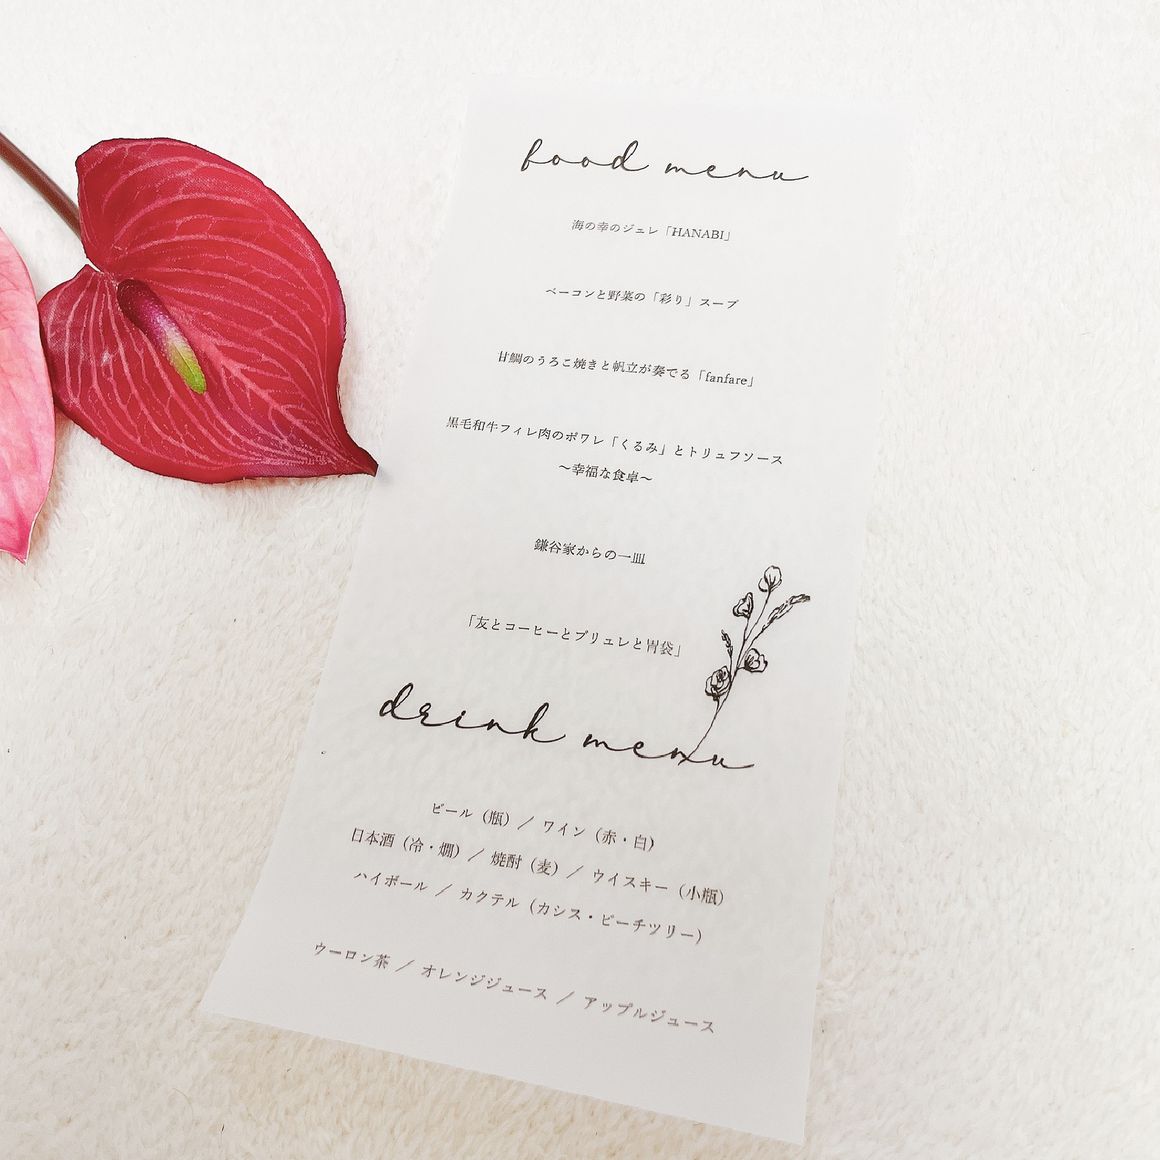 food menu
海の幸のジュレ「HANABI」
ベーコンと野菜の「彩り」スープ
甘鯛のうろこ焼きと帆立が奏でる「fanfare」
黒毛和牛フィレ肉のポワレ「くるみ」とトリュフソース
～幸福な食卓～
鎌谷家からの一皿
「友とコーヒーとブリュレと胃袋」
drink menu
ビール（瓶）／ ワイン（赤・白）
日本酒（冷・燗）／ 焼酎（麦）／ ウイスキー（小瓶）
ハイボール ／ カクテル（カシス・ピーチツリー）
ウーロン茶 ／ オレンジジュース ／ アップルジュース